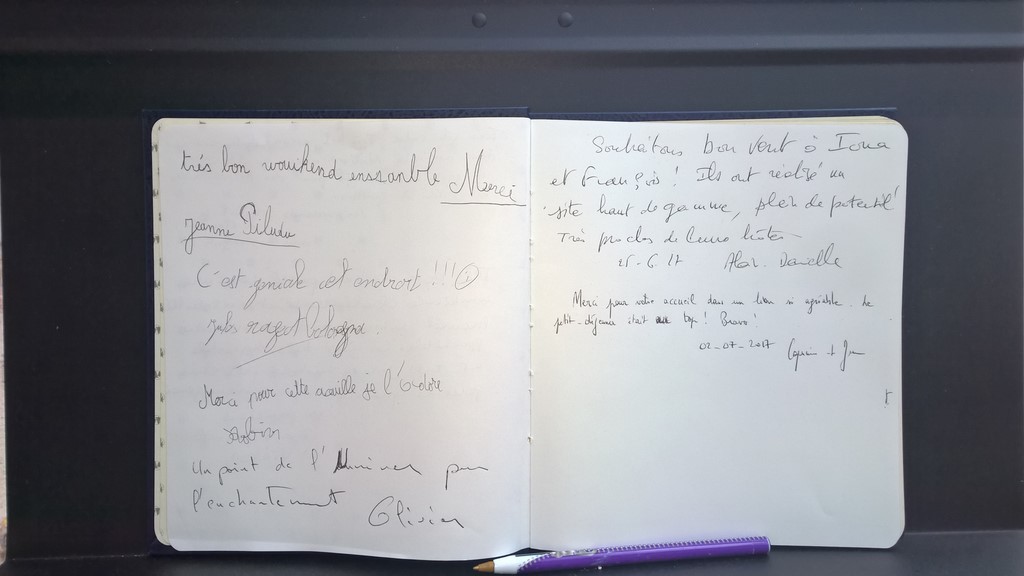 très bon wouikend enssanble Merci
Jeanne Piludu
C'est geniale cet androit !!!
jules
Merci pour cette aceuille je l'Eadore
Robin
Un point de l'Univers pour
l'enchantement
Olivier
Souhaitons bon vent à Iona
et François ! Ils ont réalisé un
site haut de gamme, plein de potentiel !
Très proches de leurs hôtes
25-6.17 Alex. Danielle
Merci pour votre accueil dans un lieu si agréable. Le
petit-déjeuner était au top ! Bravo !
02-07-2017